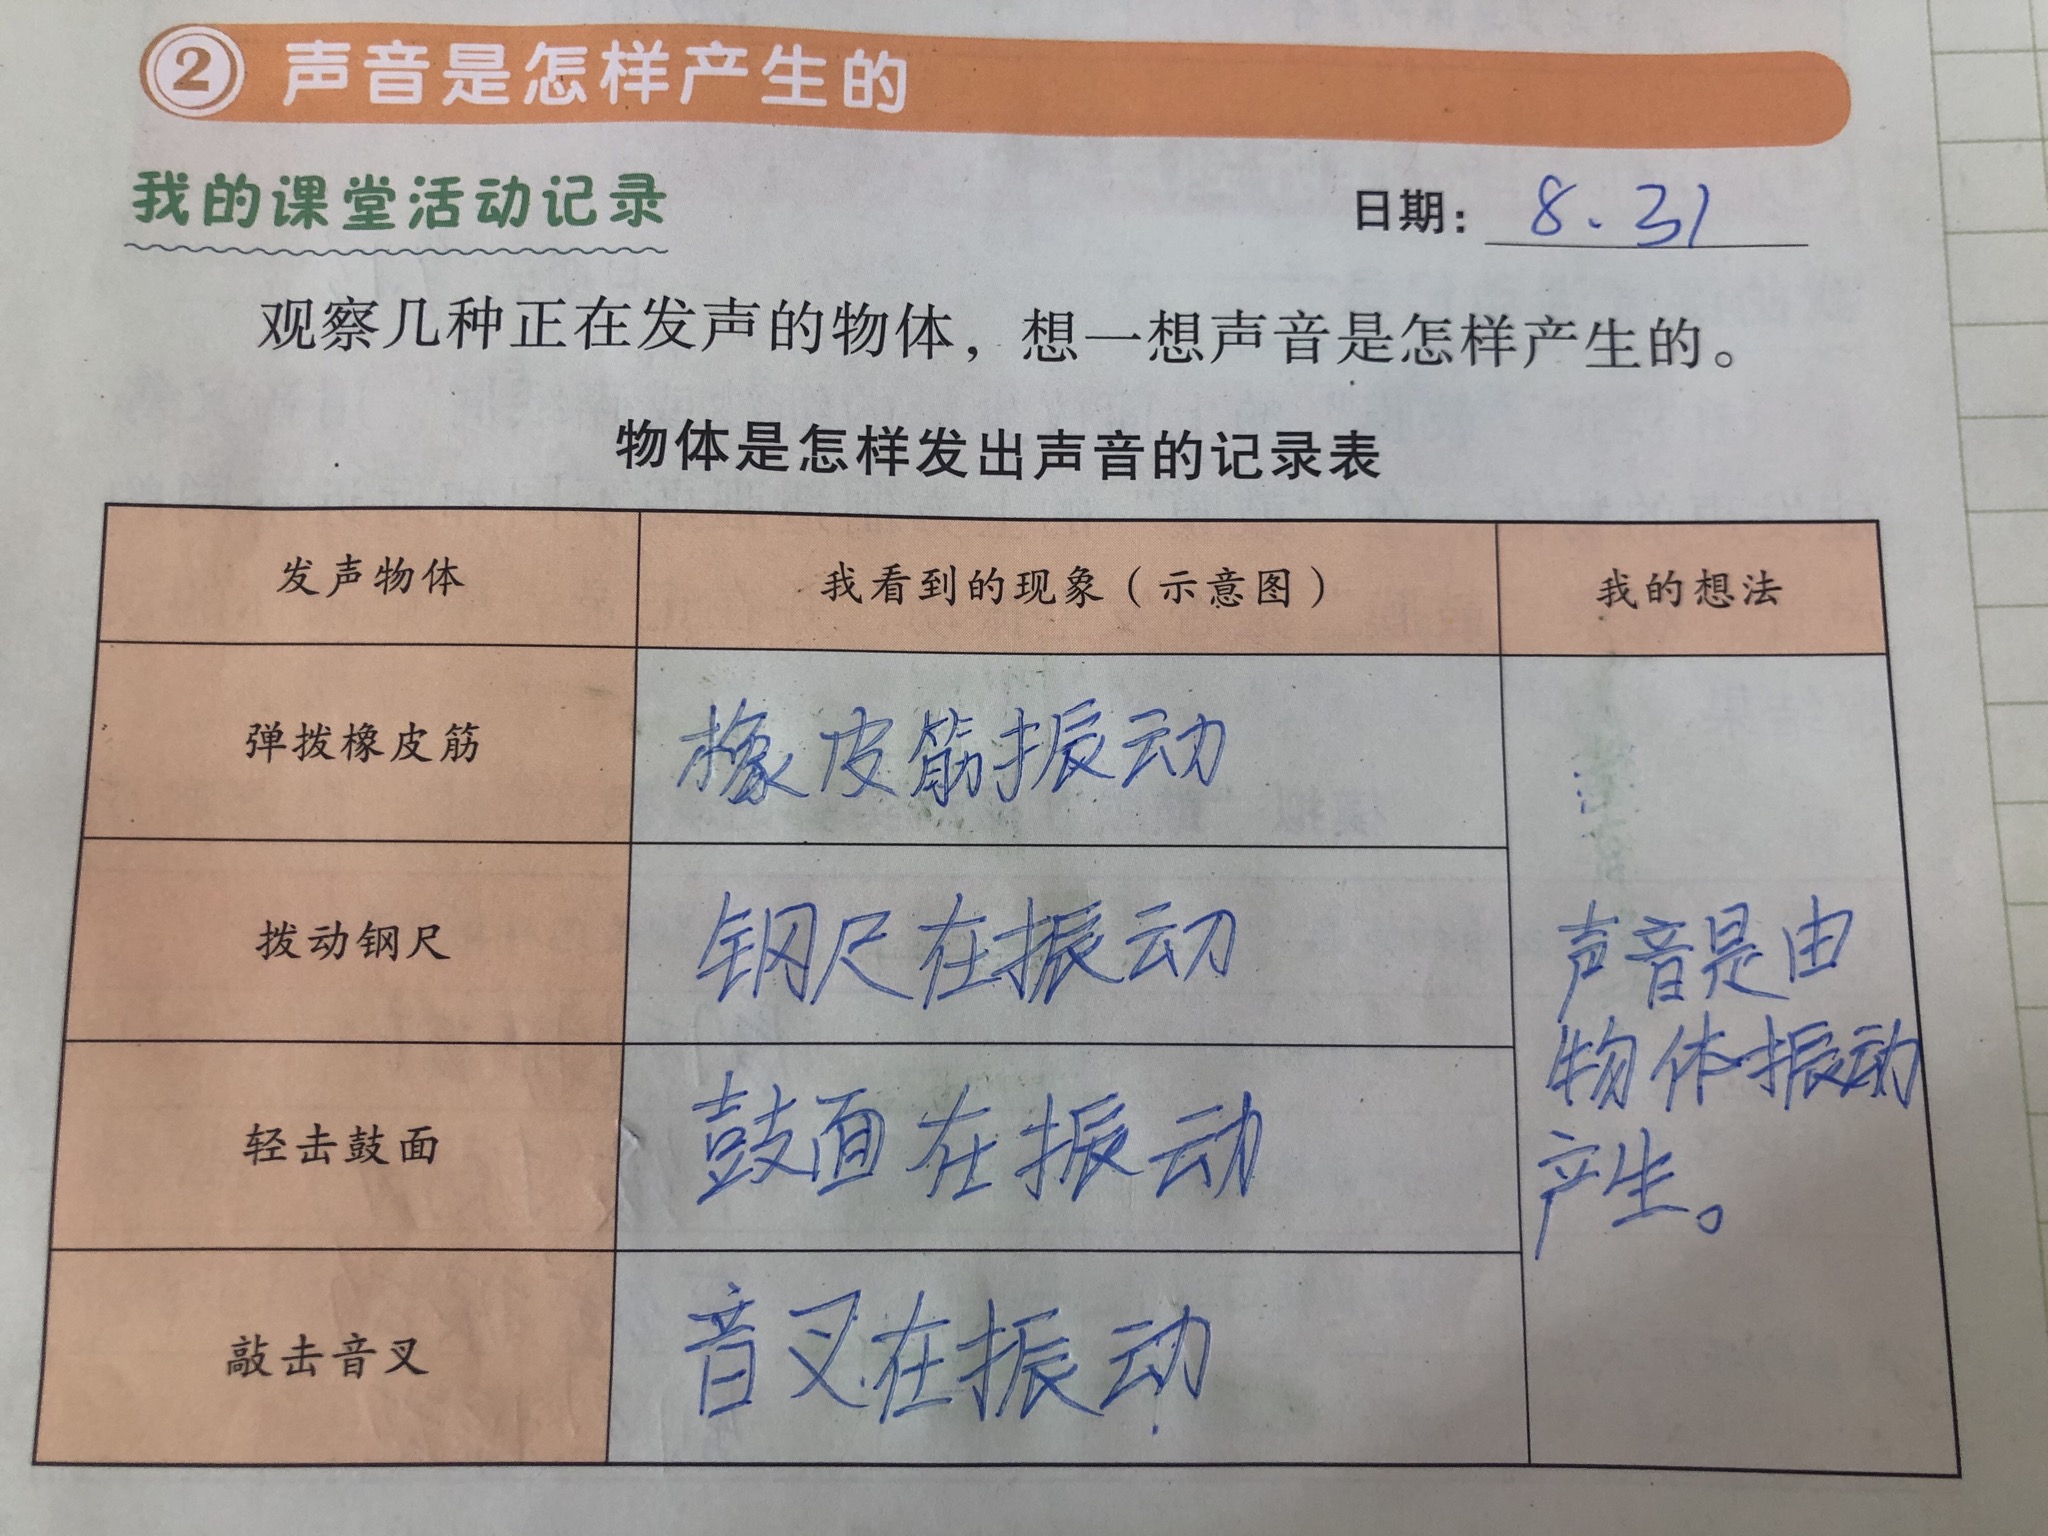 2 声音是怎样产生的
我的课堂活动记录
日期: 8.31
观察几种正在发声的物体，想一想声音是怎样产生的。
物体是怎样发出声音的记录表
发声物体 我看到的现象（示意图） 我的想法
弹拨橡皮筋 橡皮筋振动
拨动钢尺 钢尺在振动
轻击鼓面 鼓面在振动
敲击音叉 音叉在振动
声音是由
物体振动
产生。